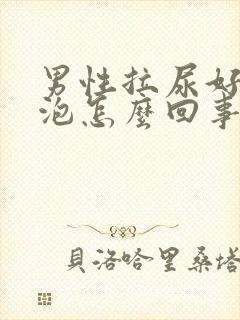 男性拉尿好
泡怎麼回事
貝洛哈里桑塔